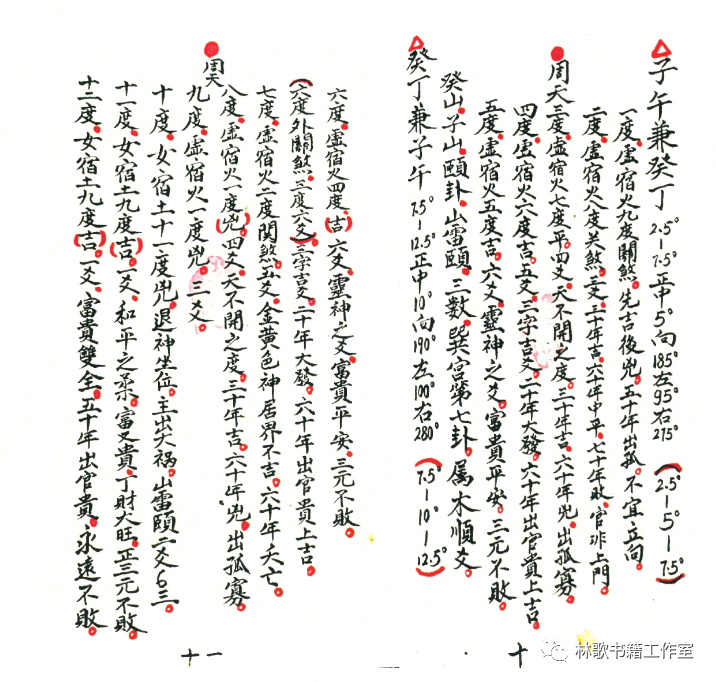 子午兼癸丁 2.5°-7.5°正中5°向185°左95°右275°(2.5°-5°-7.5°)
一度.虚宿火九度關煞.先吉後兇.五十年出孤.不宜立向.
二度.虚宿火八度关煞.三爻.三十年吉.六十年中平.七十年敗.官非上門.
周天三度.虚宿火七度平.四爻.天不開之度.三十年吉.六十年兇.出孤寡.
四度.虚宿火六度吉.五爻.三字吉爻.二十年大發.六十年出官貴上吉.
五度.虚宿火五度吉.六爻.靈神之爻.富貴平安.三元不敗.
癸山.子山.頤卦.山雷頤.三数.巽宫第七卦.属木順爻.
癸丁兼子午 7.5°-12.5°正中10°向190°左100°右280°(7.5°-10°-12.5°)
十
六度.虚宿火四度.(吉)六爻.靈神之爻.富貴平安.三元不敗.
(六度外關煞.三度六爻)三字吉爻.二十年大發.六十年出官貴上吉.
七度.虚宿火二度関煞.五爻.金黄色神居界不吉.六十年夭亡.
周天八度.虚宿火一度(兇)四爻.天不開之度.三十年吉.六十年兇.出孤寡.
九度.虚宿火一度兇.三爻.
十度.女宿土十一度兇.退神坐位.主出大禍.山雷頤二爻6三.
十一度.女宿土九度(吉)一爻.和平之柔.富又貴.丁財大旺.正三元不敗.
十二度.女宿土九度(吉)一爻.富貴雙全.五十年出官貴.永遠不敗.
十一
林歌书籍工作室